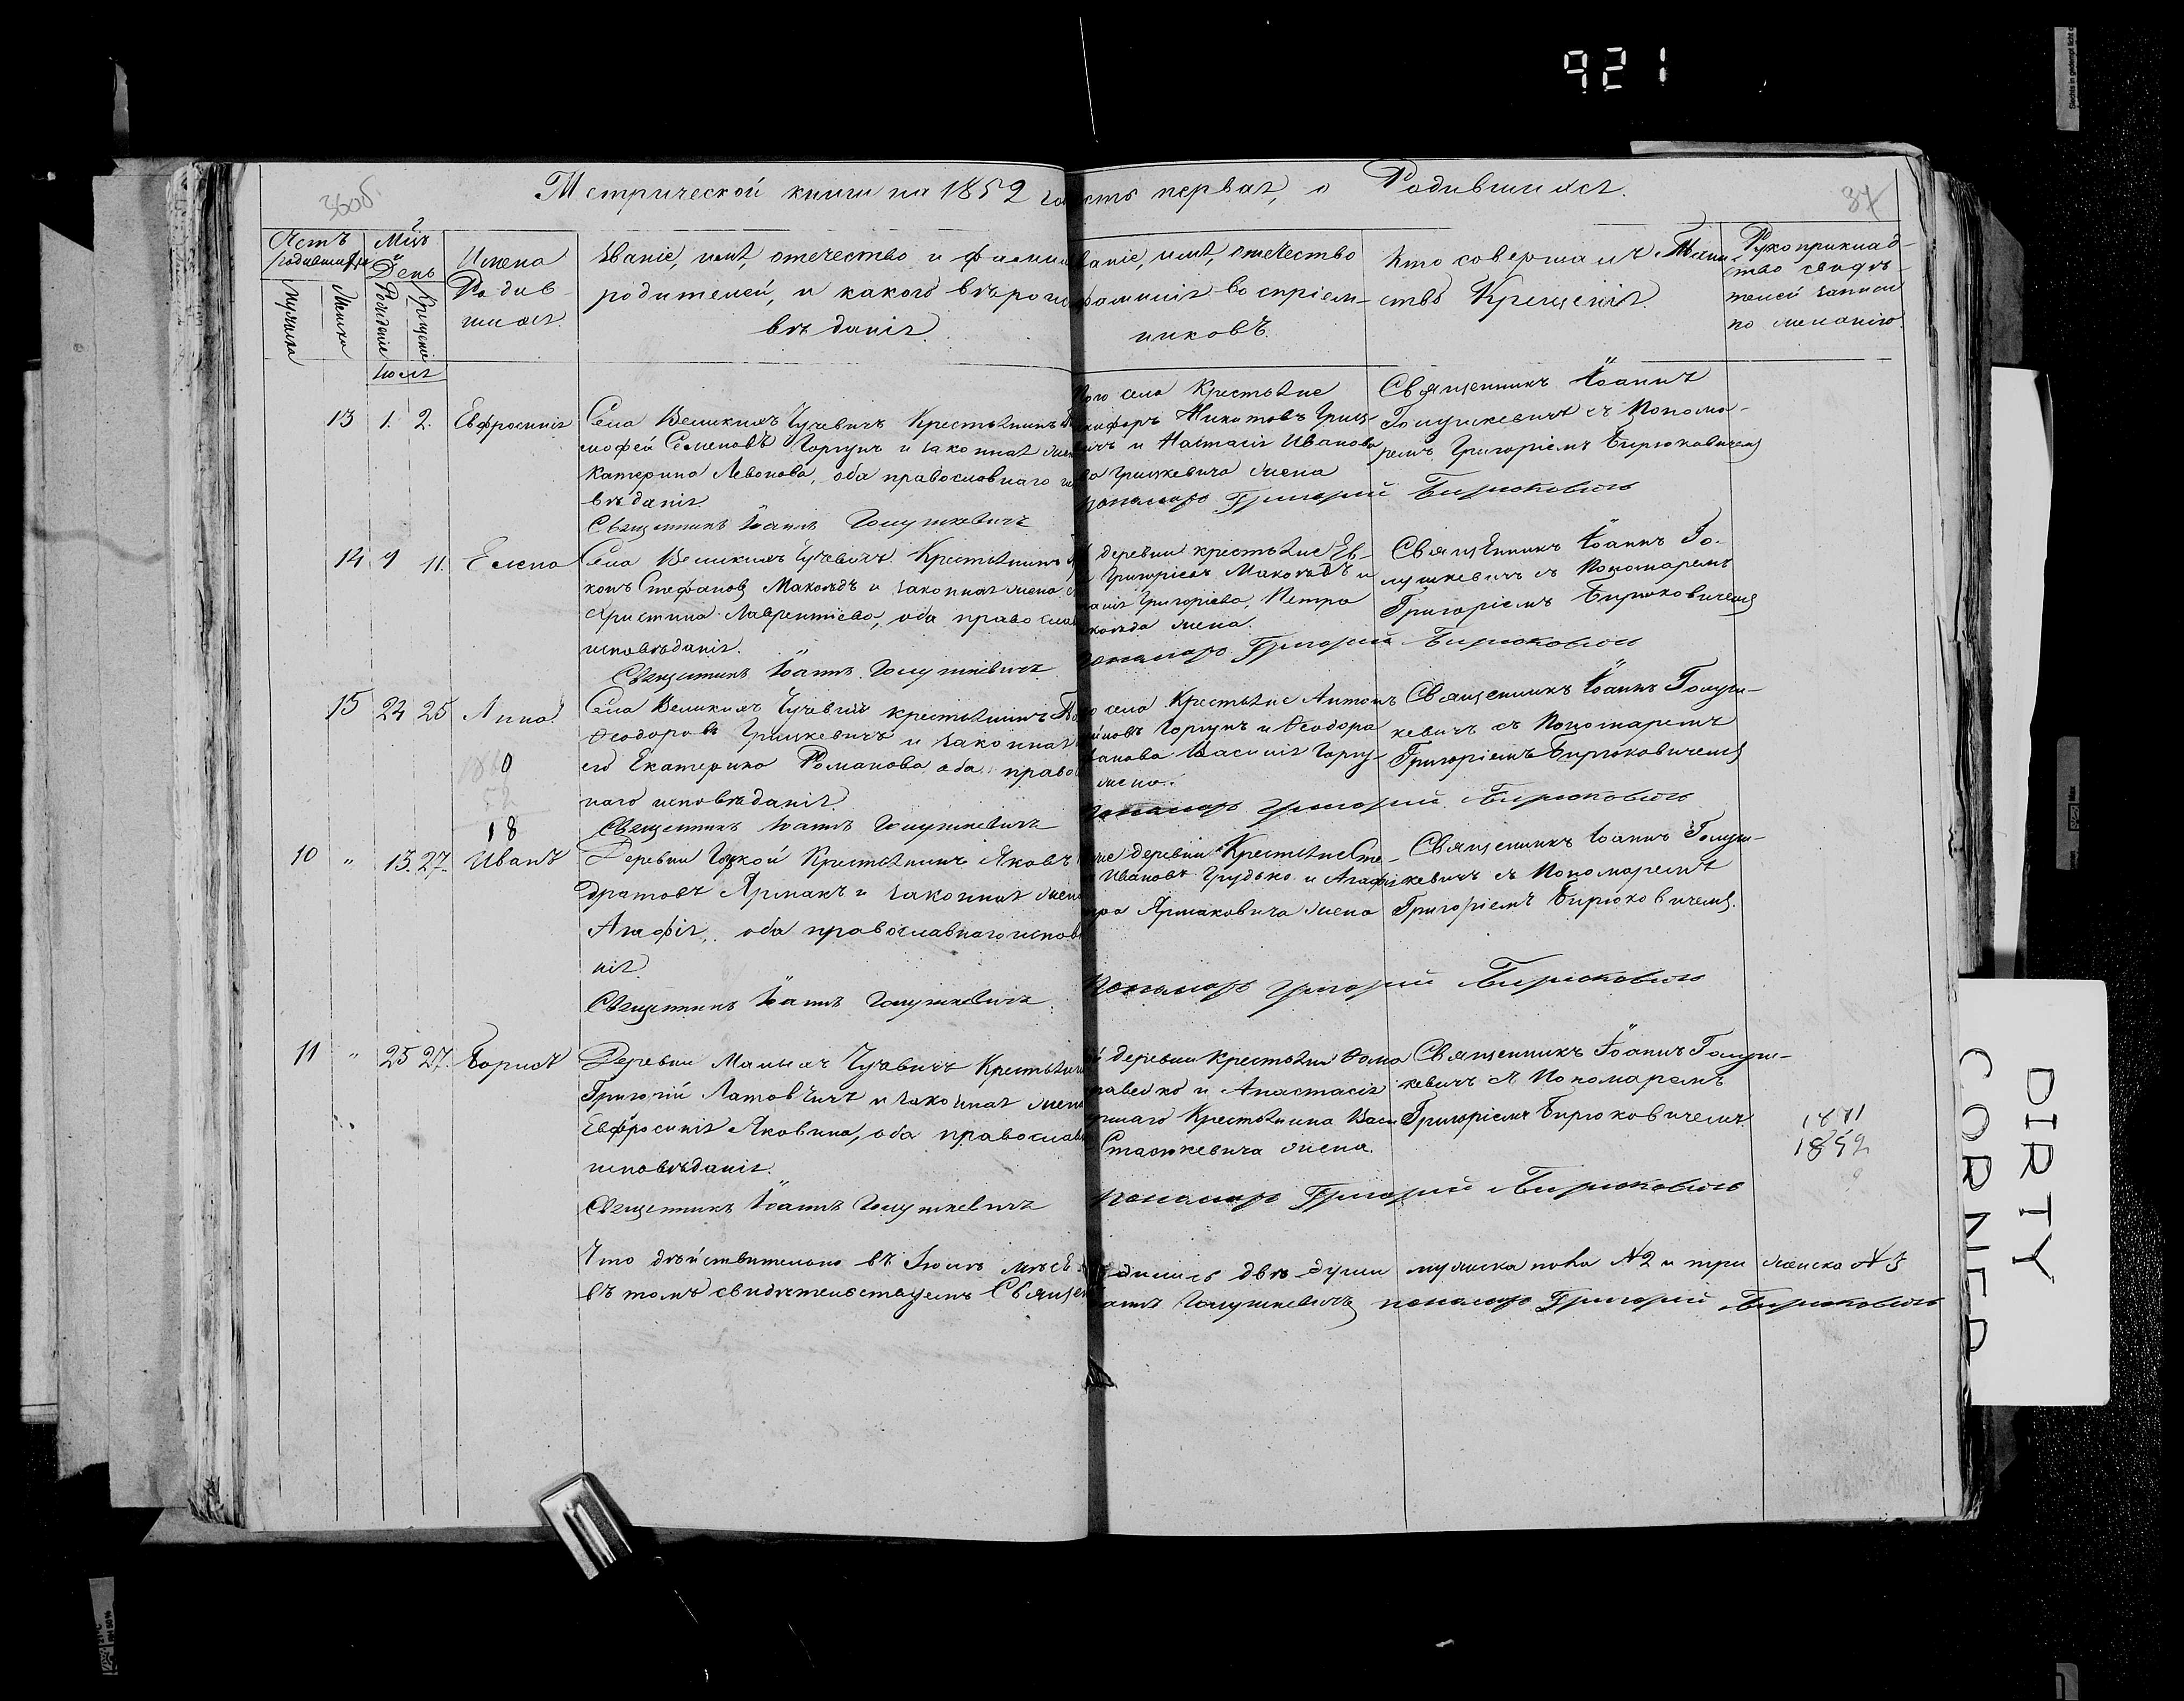 921
Метрической книги на 1852 го
сть первая, о Родившихся.
36об.
37
Счетъ родившихся
мужеска
женска
Мцъ и День
Рожденія
Крещенія
Имена Родив-
шихся.
Званіе, имя, отечество и фамил
родителей, и какого вѣроис
вѣданія.
ваніе, имя, отечество
фамилія воспріем-
никовъ.
Кто совершалъ Таин-
ство Крещенія.
Рукоприклад-
ство свидѣ-
телей записи
по желанію.
Іюля
13 1. 2. Евфросинія
Села Великихъ Чучевичъ Крестьянинъ
мофей Семеновъ Горгунъ и законная жен
Катерина Левонова, оба православнаго и
вѣданія.
Священникъ Іоаннъ Голушкевичъ
того села Крестьяне
кифоръ Никитовъ Гриц-
вичъ и Настасія Иванова
ва Грицкевича жена
Пономарь Григорій Бирюковичъ
Священникъ Іоаннъ
Голушкевичъ съ Понома-
ремъ Григоріемъ Бирюковичемъ
14 9 11. Елена
Села Великихъ Чучевичъ Крестьянинъ
конъ Стефановъ Макоедъ и законная жена
Христина Лаврентіева, оба правосла
исповѣданія.
Священникъ Іоаннъ Голушкевичъ
деревни крестьяне Ев-
Григоріевъ Макоедъ и
анія Григоріева, Петра
коеда жена.
Пономарь Григорій Бирюковичъ
Священникъ Іоаннъ Го-
лушкевичъ съ Пономаремъ
Григоріемъ Бирюковичемъ
15 24 25 Анна.
Села Великихъ Чучевичъ крестьянинъ
Ѳеодоровъ Грицкевичъ и законная
его Екатерина Романова оба право
наго исповѣданія.
Священникъ Іоаннъ Голушкевичъ
села Крестьяне Антонъ
новъ Горгунъ и Ѳеодора
ванова Василія Горгу-
жена.
Пономарь Григорій Бирюковичъ
Священникъ Іоаннъ Голуш-
кевичъ съ Пономаремъ
Григоріемъ Бирюковичемъ
18
10 " 13. 27. Иванъ
Деревни Крестьянинъ Яковъ
дратовъ Ярмакъ и законная жена
Агафія, оба православнаго испов
нія.
Священникъ Іоаннъ Голушкевичъ
деревни Крестьяне Сте-
Ивановъ Грудько и Агафія
ра Ярмаковича жена
Пономарь Григорій Бирюковичъ
Священникъ Іоаннъ Голуш-
кевичъ съ Пономаремъ
Григоріемъ Бирюковичемъ.
11 " 25 27. Борисъ
Деревни Малыхъ Чучевичъ Крестьянин
Григорій Латовичъ и законная жена
Евфросинія Яковина, оба православ
исповѣданія.
Священникъ Іоаннъ Голушкевичъ
деревни Крестьяне Ѳома
равейко и Анастасія
Крестьянина Васи
Стасюкевича жена.
Пономарь Григорій Бирюковичъ
Священникъ Іоаннъ Голуш-
кевичъ съ Пономаремъ
Григоріемъ Бирюковичемъ
1871
1852
Что дѣйствительно въ Іюлѣ мѣся
дились двѣ души мужеска пола №2 и три женска №3
въ томъ свидѣтельствуемъ Священ
аннъ Голушкевичъ пономарь Григорій Бирюковичъ
DIRTY
CORNER